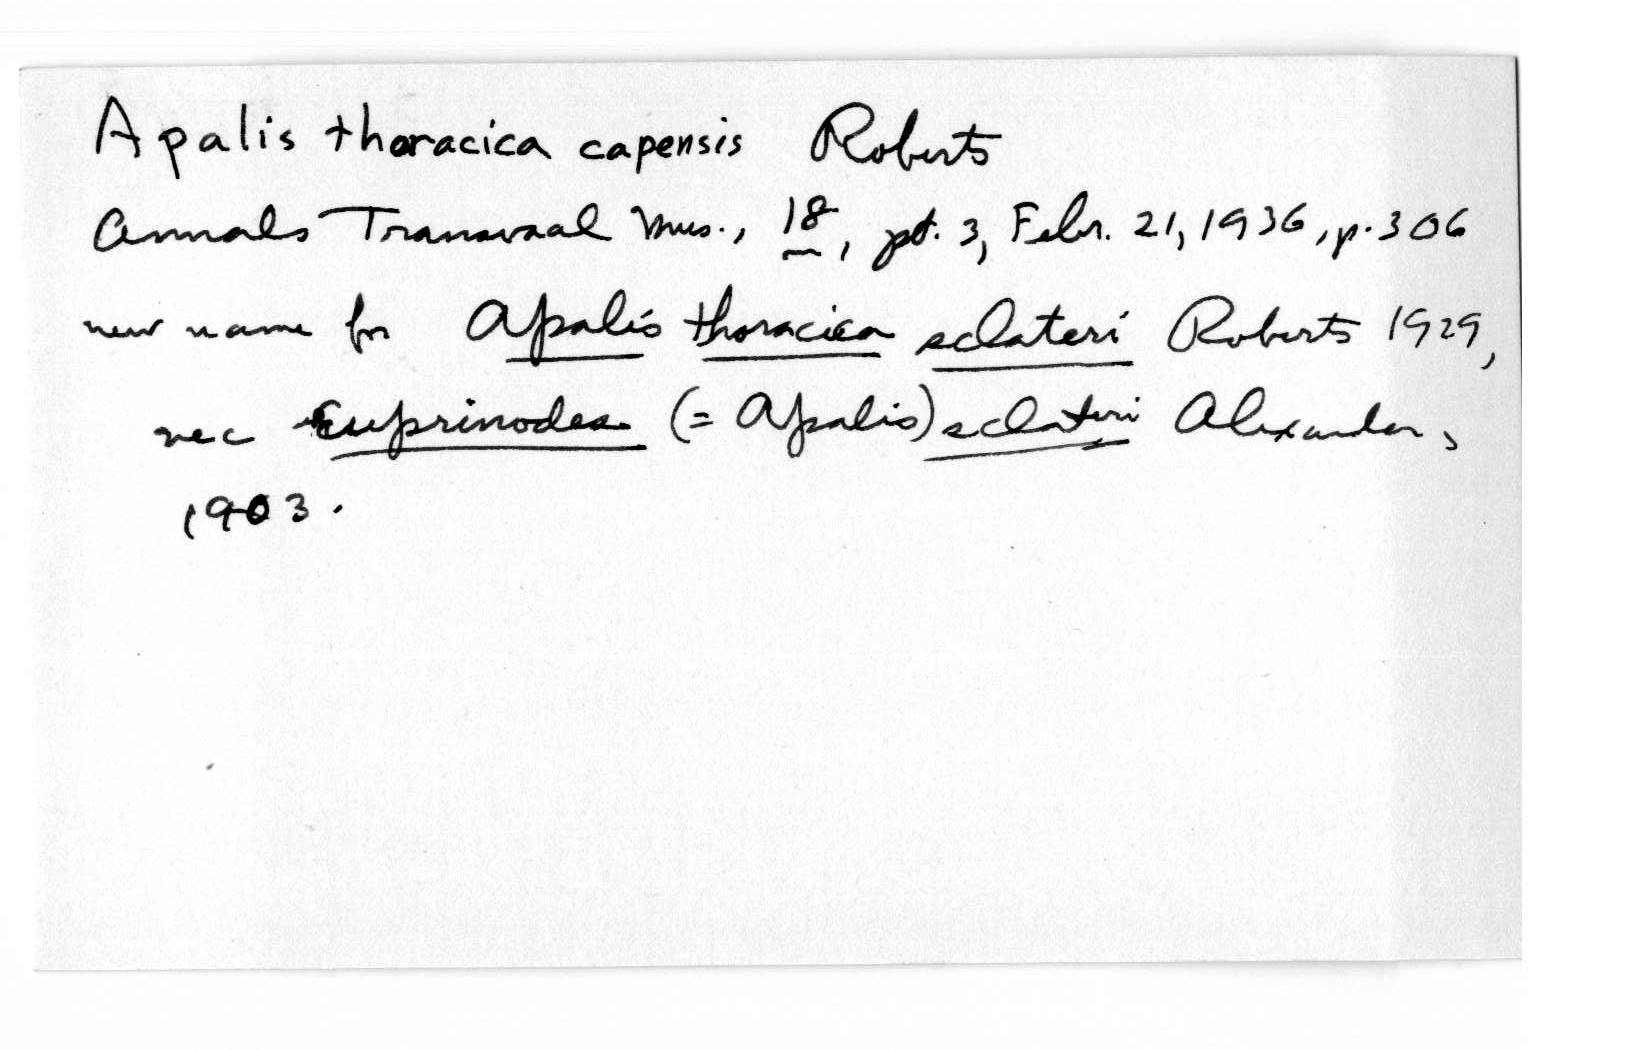 Apalis thoracica capensis Roberts
Annals Transvaal Mus., 18, pt. 3, Febr. 21, 1936, p. 306
new name for Apalis thoracica sclateri Roberts 1929,
nec Euprinodes (= Apalis) sclateri Alexander,
1903.